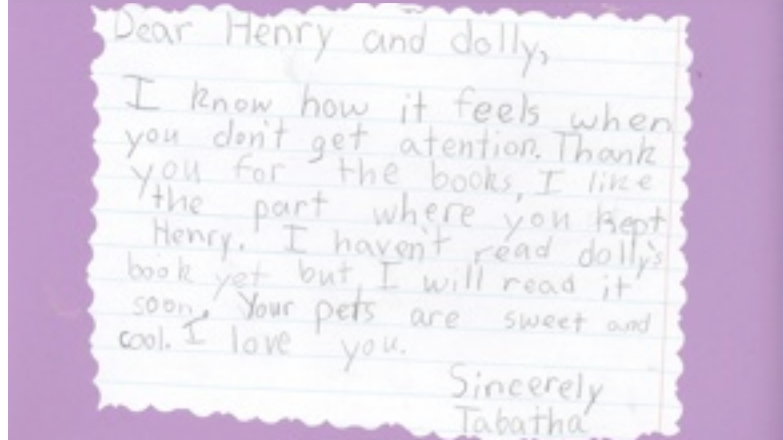 Dear Henry and dolly,
I know how it feels when
you don't get atention. Thank
you for the books, I like
the part where you kept
Henry. I haven't read dolly's
book yet but I will read it
soon. Your pets are sweet and
cool. I love you.
Sincerely
Tabatha